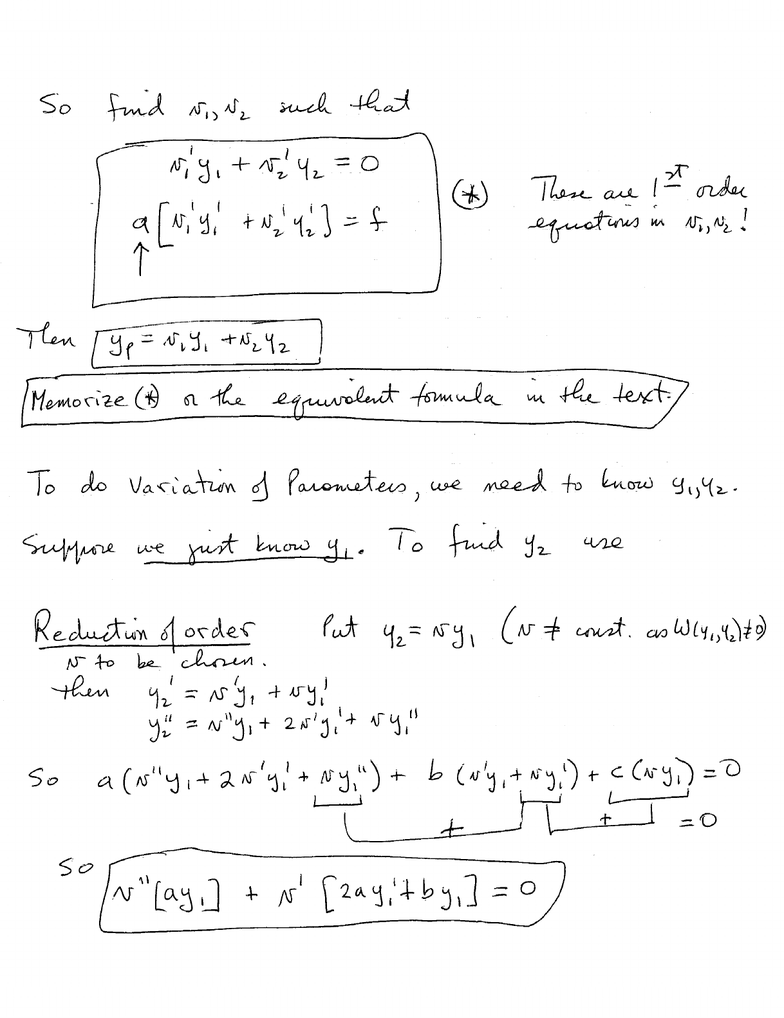 So find v₁, v₂ such that
v₁'y₁ + v₂'y₂ = 0
a[v₁'y₁' + v₂'y₂'] = f
↑
(*) These are 1st order
equations in v₁, v₂ !
Then y_p = v₁y₁ + v₂y₂
Memorize (*) or the equivalent formula in the text.
To do Variation of Parameters, we need to know y₁, y₂.
Suppose we just know y₁. To find y₂ use
Reduction of order Put y₂ = vy₁ (v ≠ const. as W(y₁,y₂)≠0)
v to be chosen.
then y₂' = v'y₁ + vy₁'
y₂'' = v''y₁ + 2v'y₁' + vy₁''
So a(v''y₁ + 2v'y₁' + vy₁'') + b(v'y₁ + vy₁') + c(vy₁) = 0
+ + = 0
So v''[ay₁] + v'[2ay₁' + by₁] = 0